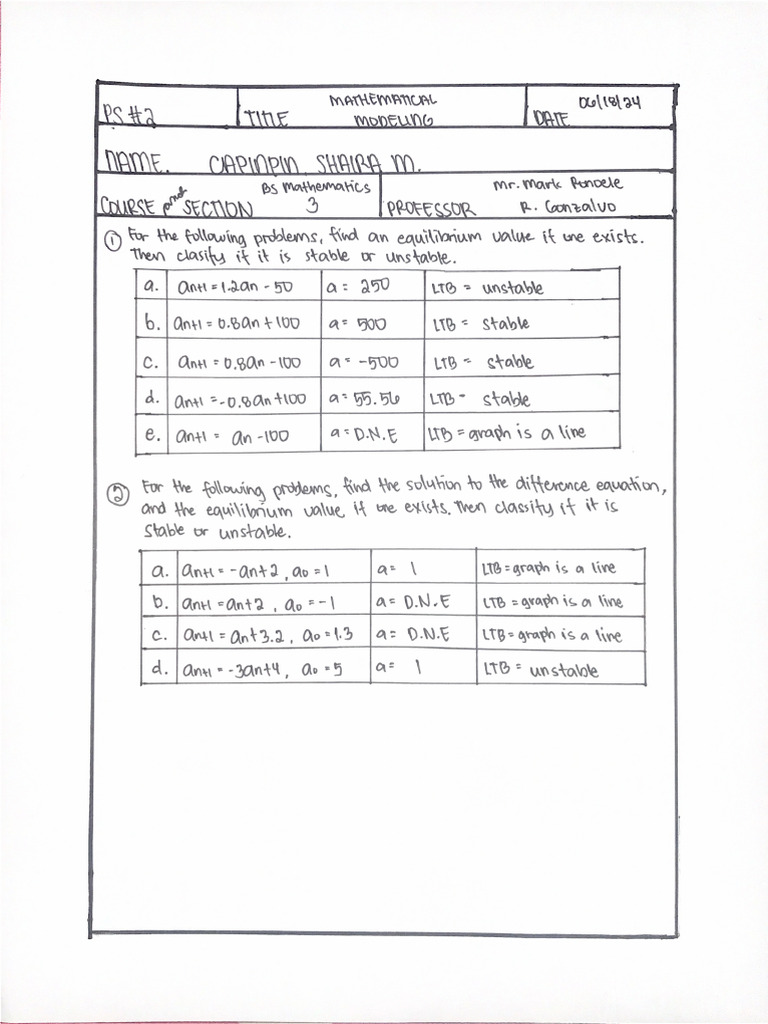 PS #2 TITLE MATHEMATICAL MODELING DATE 06/18/24
NAME. CAPINPIN, SHAIRA M.
COURSE and SECTION BS Mathematics 3 PROFESSOR Mr. Mark R. Gonzalvo
① For the following problems, find an equilibrium value if one exists.
Then clasify if it is stable or unstable.
a. an+1 = 1.2an - 50 a = 250 LTB = unstable
b. an+1 = 0.8an + 100 a = 500 LTB = stable
c. an+1 = 0.8an - 100 a = -500 LTB = stable
d. an+1 = -0.8an + 100 a = 55.56 LTB = stable
e. an+1 = an - 100 a = D.N.E LTB = graph is a line
② For the following problems, find the solution to the difference equation,
and the equilibrium value if one exists. Then classify if it is
stable or unstable.
a. an+1 = -an + 2, a0 = 1 a = 1 LTB = graph is a line
b. an+1 = an + 2, a0 = -1 a = D.N.E LTB = graph is a line
c. an+1 = an + 3.2, a0 = 1.3 a = D.N.E LTB = graph is a line
d. an+1 = -3an + 4, a0 = 5 a = 1 LTB = unstable